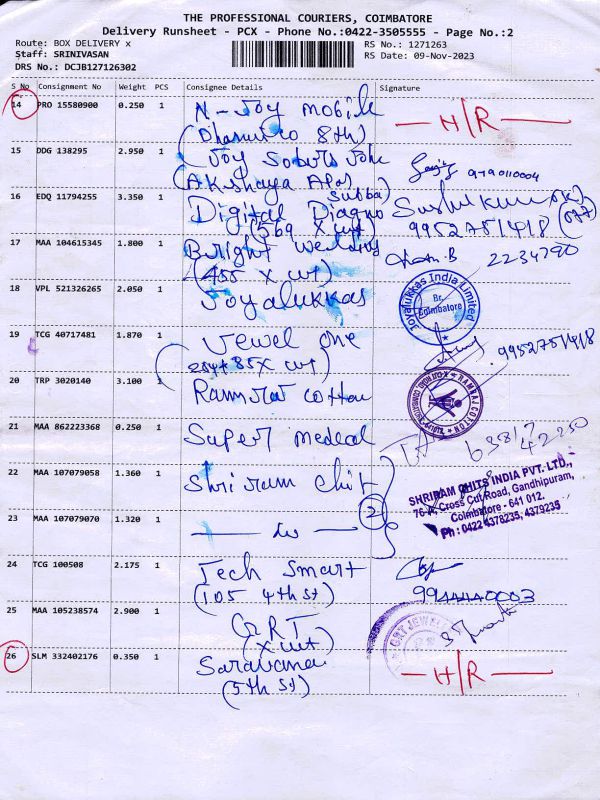 THE PROFESSIONAL COURIERS, COIMBATORE
Delivery Runsheet - PCX - Phone No.:0422-3505555 - Page No.:2
Route: BOX DELIVERY x
Staff: SRINIVASAN
DRS No.: DCJB127126302
RS No.: 1271263
RS Date: 09-Nov-2023
S No Consignment No Weight PCS Consignee Details Signature
14 PRO 15580900 0.250 1 N-Joy Mobile
(8th)
H/R
15 DDG 138295 2.950 1 Joy
(Akshaya Apas
9790110004
16 EDQ 11794255 3.350 1 Digital Diagno
(569 X cut)
9952751418
17 MAA 104615345 1.800 1 Bright wedding
(455 X cut)
2234790
18 VPL 521326265 2.050 1 Joyalukkas
Joyalukkas India Limited
Br.
Coimbatore
19 TCG 40717481 1.870 1 Jewel one
9952751418
20 TRP 3020140 3.100 1 Ramraj cotton
RAMRAJ COTTON
21 MAA 862223368 0.250 1 Super medical
42250
22 MAA 107079058 1.360 1 Shriram Chit
2
SHRIRAM CHITS INDIA PVT. LTD.,
76-A, Cross Cut Road, Gandhipuram,
Coimbatore - 641 012.
Ph : 0422 4378235, 4379235
23 MAA 107079070 1.320 1 — do —
24 TCG 100508 2.175 1 Tech Smart
(105 4th St)
9944440003
25 MAA 105238574 2.900 1 GRT
(X cut)
GRT JEWELL
26 SLM 332402176 0.350 1 Saravana
(5th St)
H/R